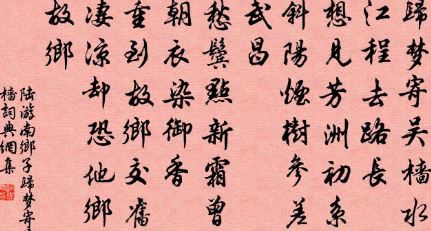 歸夢寄吳檣水
江程去路長
想見芳洲初系
斜陽煙樹參差
武昌
愁鬢點新霜曾
朝衣染御香
重到故鄉交舊
淒涼卻恐他鄉
故鄉
陸游南鄉子歸夢寄
檣詞典網集